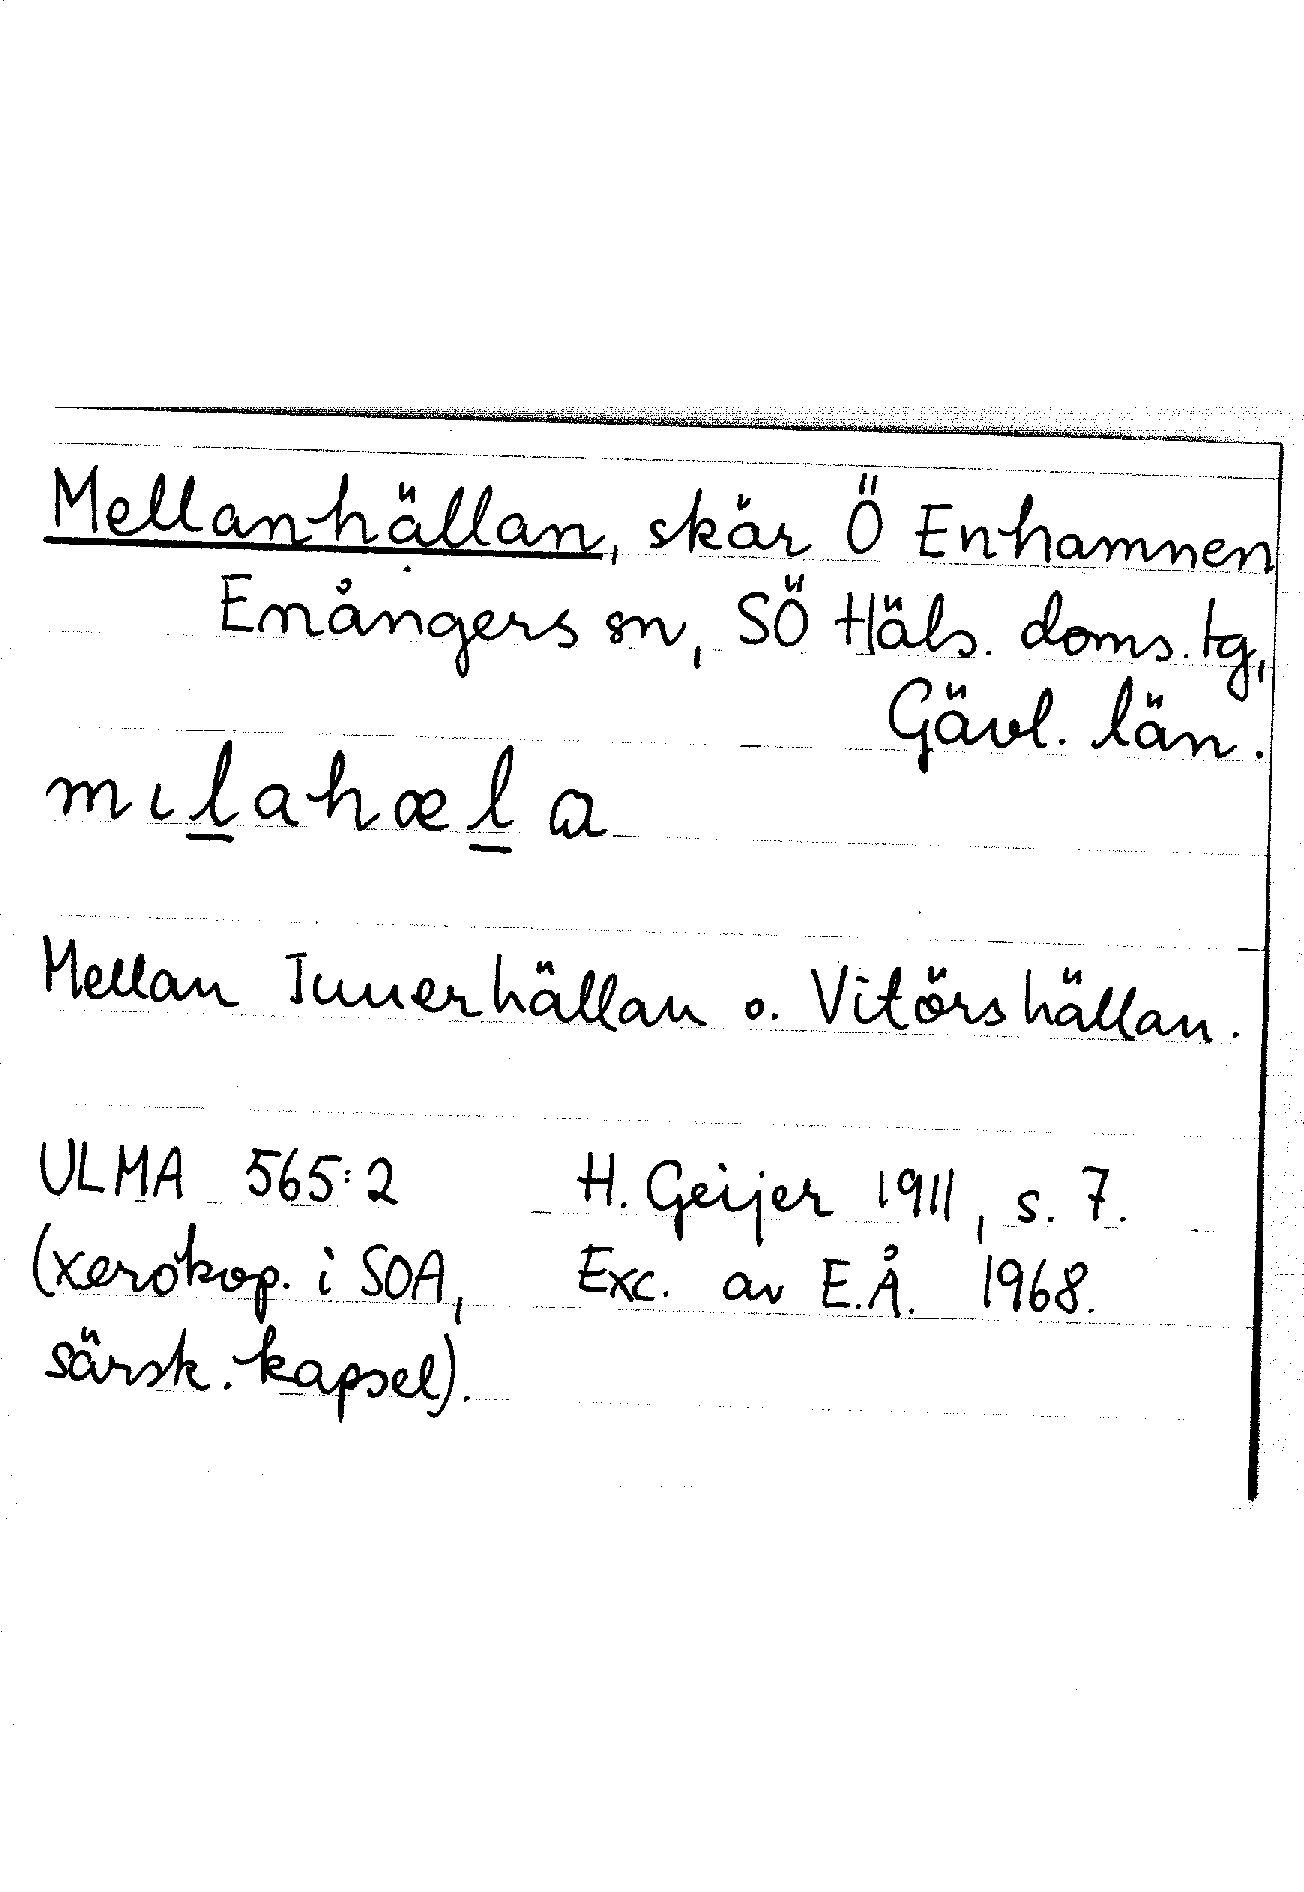 Mellanhällan, skär Ö Enhamnen
Enångers sn, SÖ Häls. doms. tg,
Gävl. län.
mıl̲ahæl̲ɑ
Mellan Innerhällan o. Vitörshällan.
ULMA 565:2 H. Geijer 1911, s. 7.
(xerokop. i SOA, Exc. av E.Å. 1968.
särsk. kapsel).